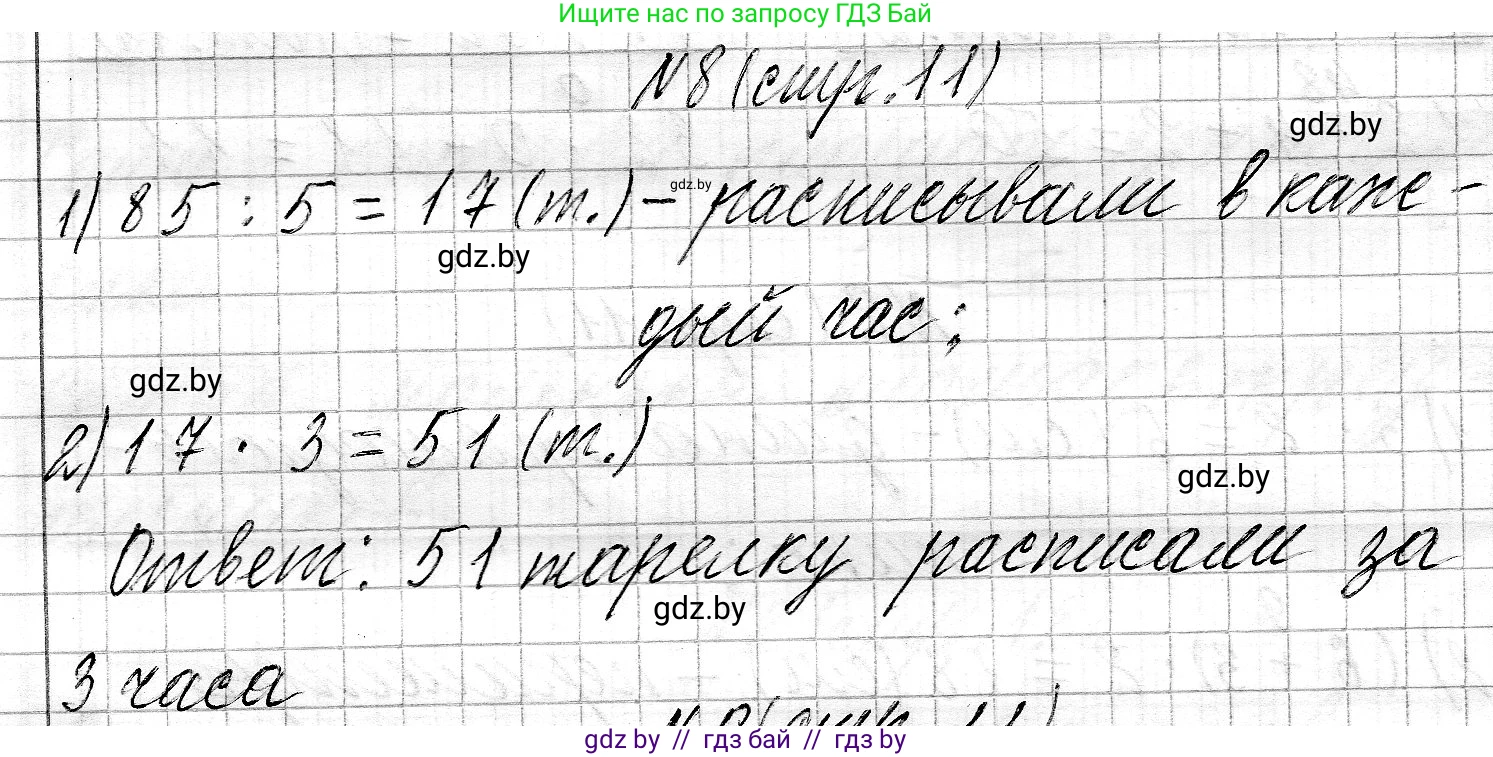 Ищите нас по запросу ГДЗ Бай
№8 (стр. 11)
gdz.by
1) 85 : 5 = 17 (т.) – расписывали в каж-
gdz.by
gdz.by
дый час;
gdz.by
2) 17 · 3 = 51 (т.)
gdz.by
Ответ: 51 тарелку расписали за
gdz.by
3 часа
gdz.by // гдз бай // гдз by